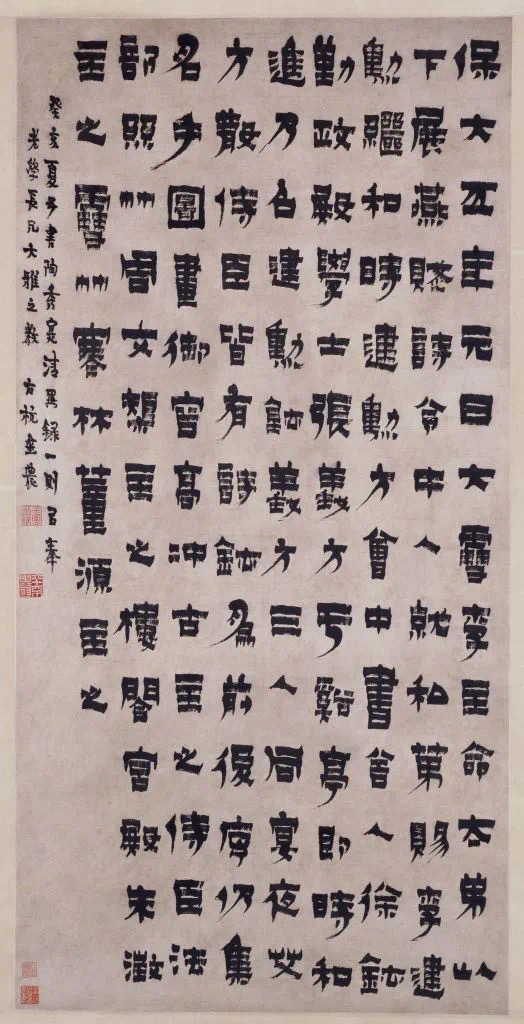 保大五年元日大雪李主命太弟以
下展燕賦詩令中人就私第賜李建
勳繼和時建勳方會中書舍人徐鉉
勤政殿學士張義方于谿亭即時和
進乃召建勳鉉義方三人同宴夜艾
方散侍臣皆有詩鉉為前後序仍集
名手圖畫御容高沖古主之侍臣法
部絲竹周文矩主之樓閣宮殿朱澂
主之雪竹寒林董源主之
癸亥夏五書陶秀寔清異錄一則以奉
老學長兄大雅之教 古杭金農